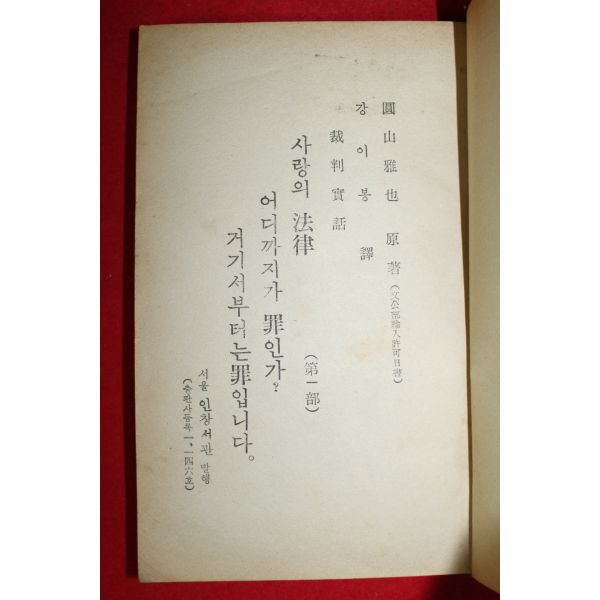 圓山雅也 原著 (文公部輸入許可日書)
강이봉 譯
裁判實話
사랑의 法律 (第一部)
어디까지가 罪인가?
거기서부터는 罪입니다。
서울 인창서관 발행
(출판사등록 一、一四六호)